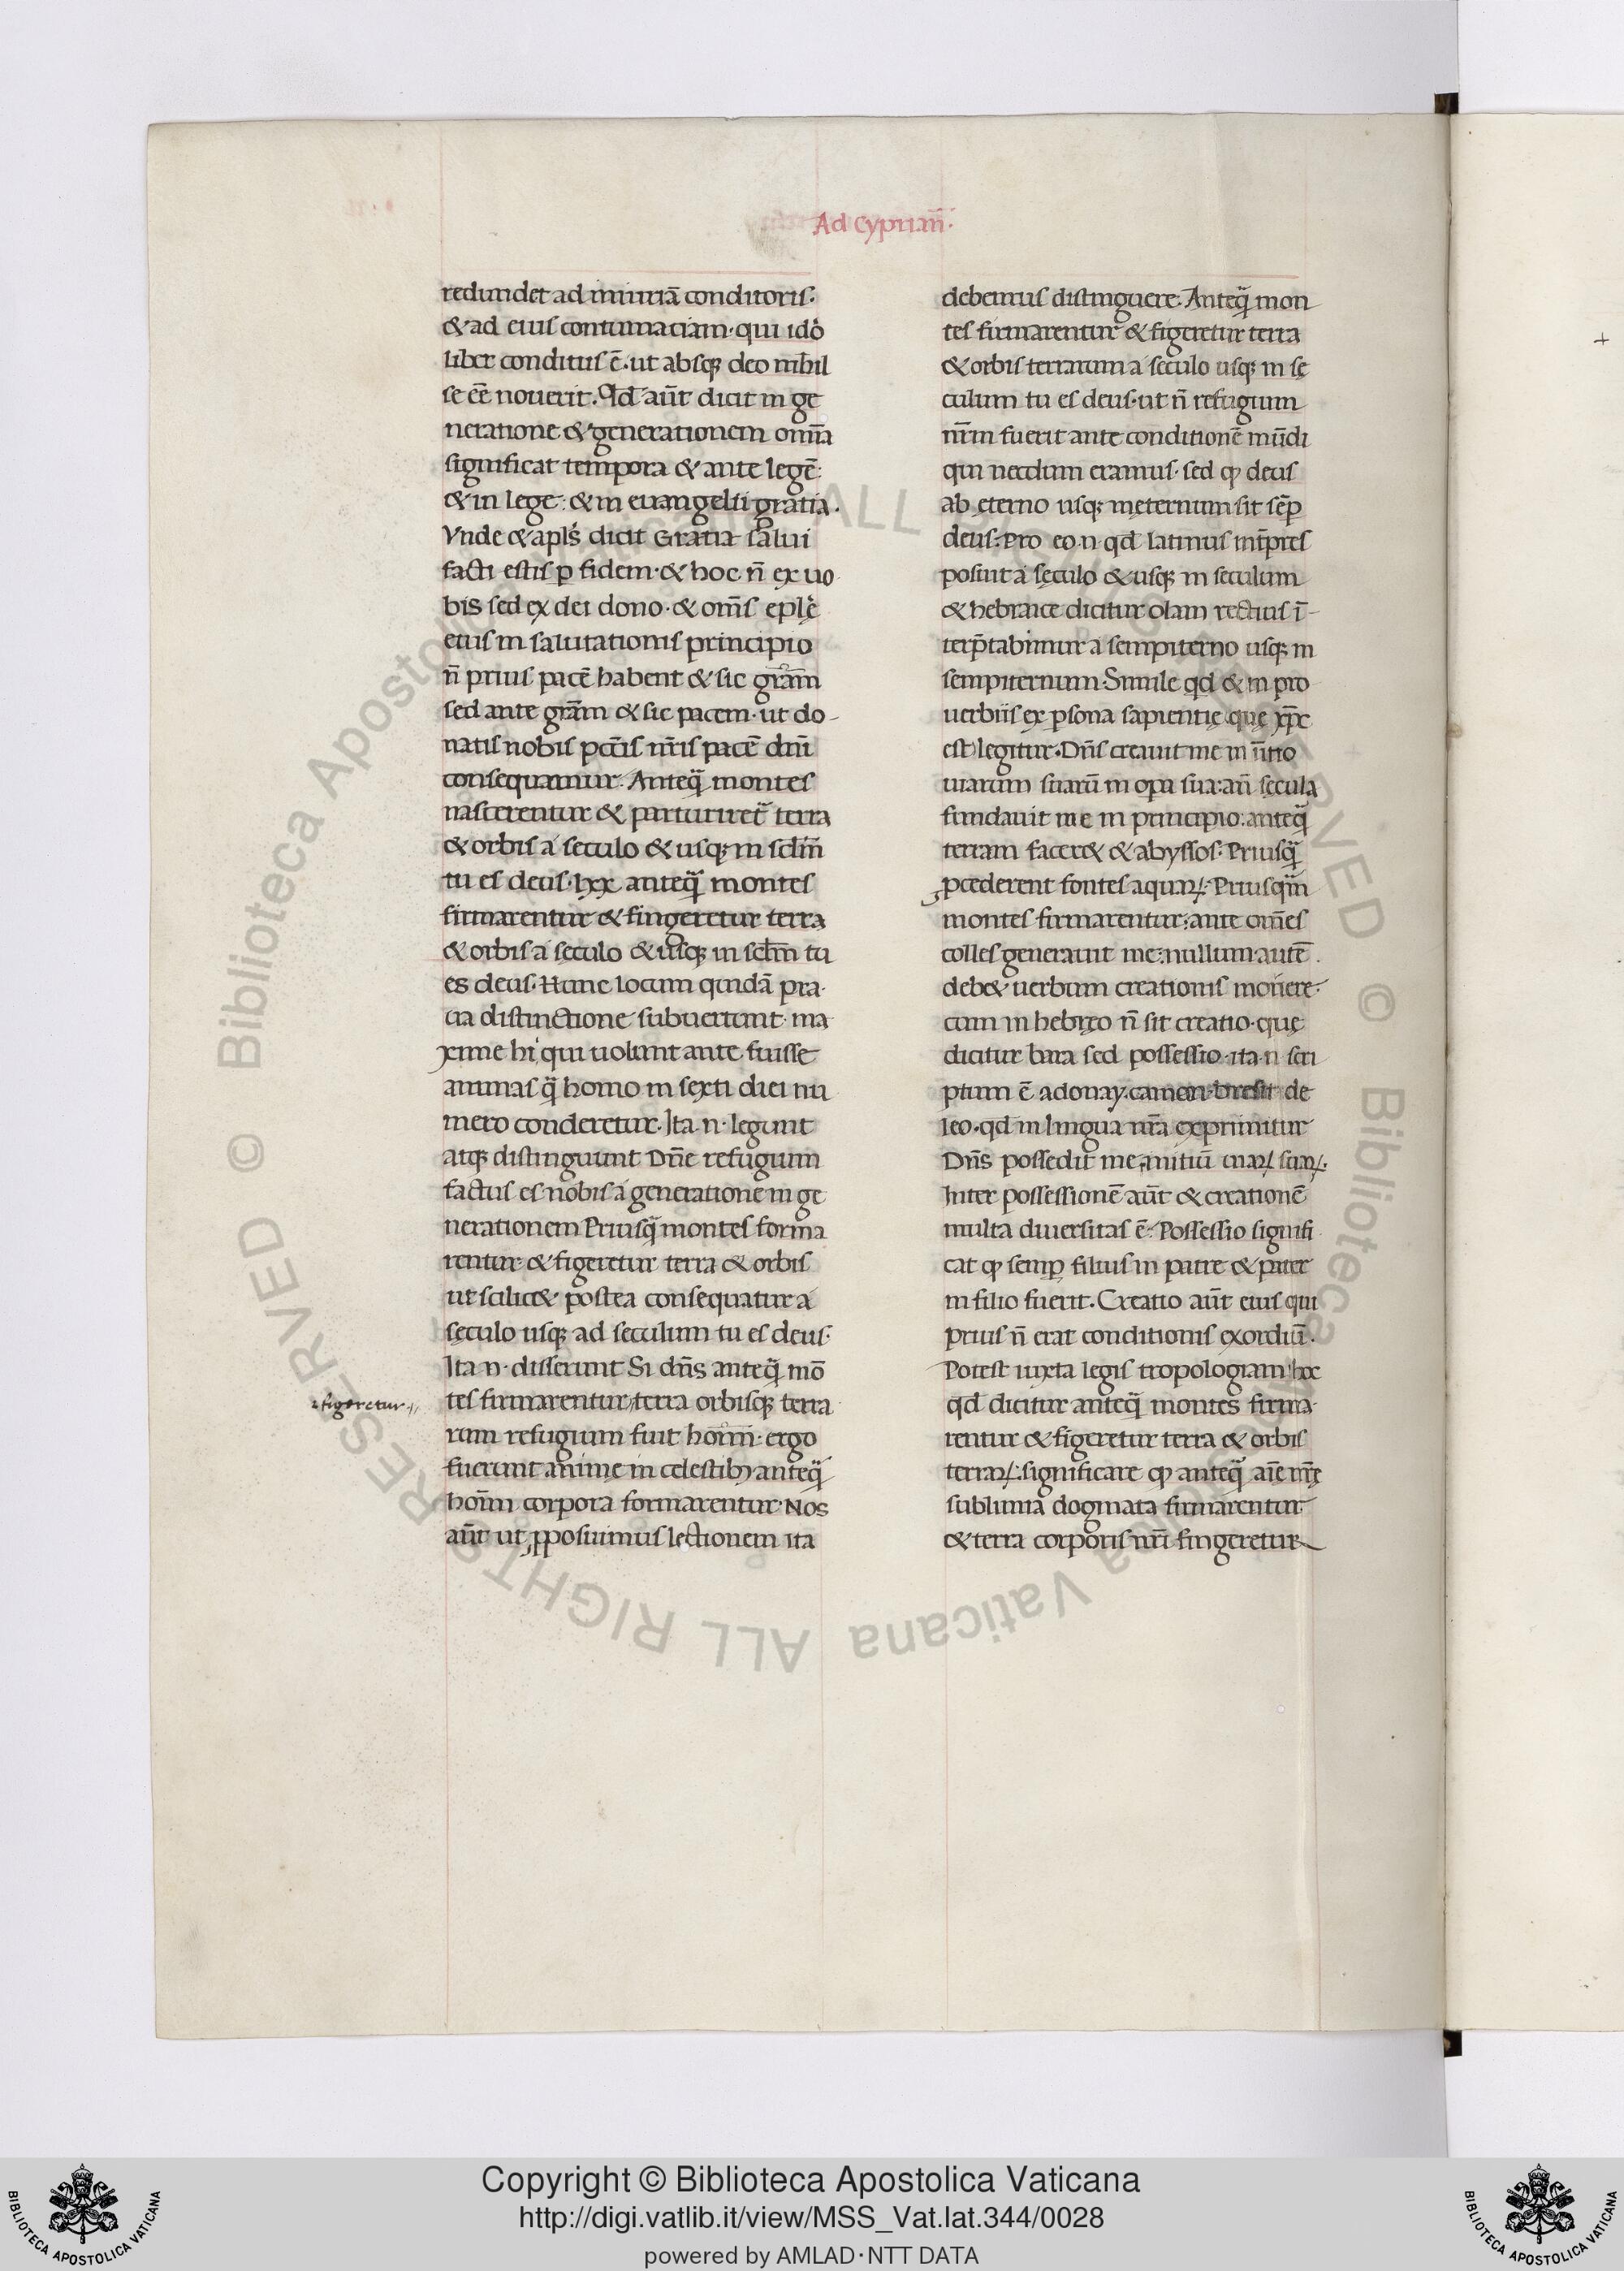 Ad Cyprian̄.
redundet ad iniuriā conditoris.
& ad eius contumaciam. qui idō
liber conditus ē. ut absq; deo nihil
se eē nouerit. Qd̄ aūt dicit in ge
neratione & generationem om̄ia
significat tempora & ante legē:
& in lege: & in euangelii gratia.
Vnde & apl̄s dicit Gratia salui
facti estis p̄ fidem. & hoc n̄ ex uo
bis sed ex dei dono. & om̄s eplę
eius in salutationis principio
n̄ prius pacē habent & sic grām
sed ante grām & sic pacem. ut do-
natis nobis pctīs nr̄is pacē dnī
consequamur. Anteq̄ montes
nascerentur & parturiret̄ terra
& orbis a seculo & usq; in sclm̄
tu es deus. lxx anteq̄ montes
firmarentur & fingeretur terra
& orbis a seculo & usq; in sclm̄ tu
es deus. Hunc locum quidā pra
ua distinctione subuertunt. ma
xime hi qui uolunt ante fuisse
animas q̄ homo in sexti diei nu
mero conderetur. Ita .n. legunt
atq; distinguunt Dn̄e refugium
factus es nobis a generatione in ge
nerationem Priusq̄ montes forma
rentur & figeretur terra & orbis
ut scilic& postea consequatur a
sęculo usq; ad seculum tu es deus.
Ita .n. disserunt Si dn̄s anteq̄ mō
& figeretur
tes firmarentur, terra orbisq; terra
rum refugium fuit hoīm. ergo
fuerunt anime in celestib; anteq̄
hoīm corpora formarentur. Nos
aūt ut pposuimus lectionem ita
debemus distinguere. Anteq̄ mon
tes firmarentur & figeretur terra
& orbis terrarum a seculo usq; in sę
culum tu es deus. ut n̄ refugium
nr̄m fuerit ante conditionē mūdi
qui necdum eramus. sed q̨ deus
ab ęterno usq; in ęternum sit sēp
deus. Pro eo .n. qd̄ latinus int̄pres
posuit a sęculo & usq; in seculum
& hebraice dicitur olam rectius ī-
terp̄tabimur a sempiterno usq; in
sempiternum. Simile qd̄ & in pro
uerbiis ex p̄sona sapientię quę xp̄c
est legitur. Dn̄s creauit me in ītio
uiarum suarū in opa sua: an̄ sęcula
fundauit me in principio. anteq̄
terram facer& & abyssos. Priusq̄
pcederent fontes aquaꝝ. Priusq̄m
montes firmarentur: ante om̄es
colles generauit me: nullum autē
deb& uerbum creationis mouere.
cum in hebręo n̄ sit creatio. quę
dicitur bara sed possessio. ita .n. scri
ptum ē adonay. canan. bresit de
leo. qd̄ in lingua nr̄a exprimitur
Dn̄s possedit me initiū uiaꝝ suaꝝ.
Inter possessionē aūt & creationē
multa diuersitas ē. Possessio signifi
cat q̨ semp̄ filius in patre & pater
in filio fuerit. Creatio aūt eius qui
prius n̄ erat conditionis exordiū.
Potest iuxta legis tropologiam hoc
qd̄ dicitur anteq̄ montes firma
rentur & figeretur terra & orbis
terraꝝ: significare q̨ anteq̄ aīe nr̄ę
sublimia dogmata firmarentur
& terra corporis nr̄i fingeretur
Copyright © Biblioteca Apostolica Vaticana
http://digi.vatlib.it/view/MSS_Vat.lat.344/0028
powered by AMLAD·NTT DATA
BIBLIOTECA APOSTOLICA VATICANA
BIBLIOTECA APOSTOLICA VATICANA
© Biblioteca Apostolica Vaticana ALL RIGHTS RESERVED © Biblioteca Apostolica Vaticana ALL RIGHTS RESERVED